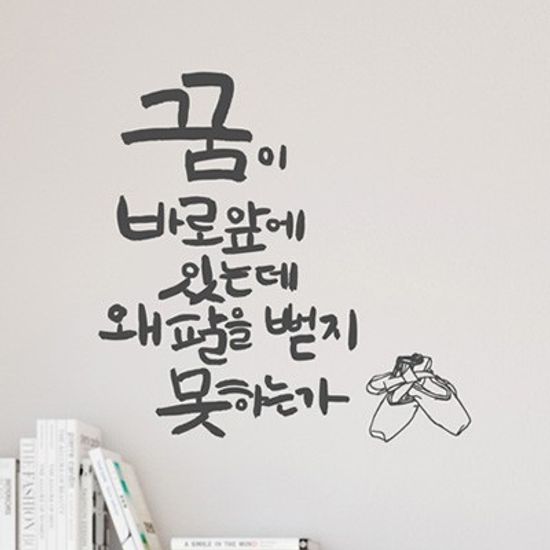 꿈이
바로앞에
있는데
왜 팔을 뻗지
못하는가
INTERIORS
THE FASHION
A SIMPLE IN THE MIND